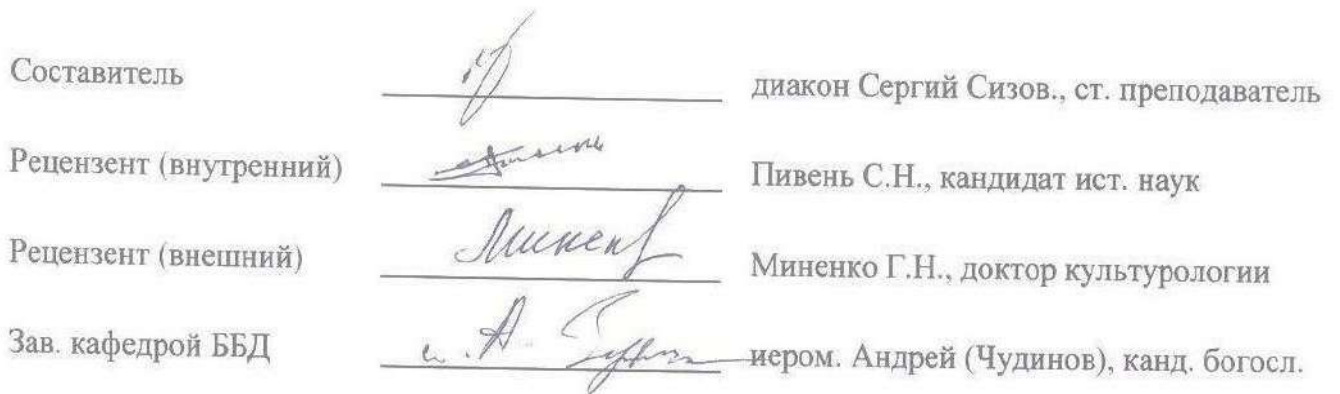 Составитель диакон Сергий Сизов., ст. преподаватель
Рецензент (внутренний) Пивень С.Н., кандидат ист. наук
Рецензент (внешний) Миненко Г.Н., доктор культурологии
Зав. кафедрой ББД иером. Андрей (Чудинов), канд. богосл.